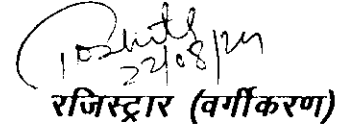 22/08/24
रजिस्ट्रार (वर्गीकरण)